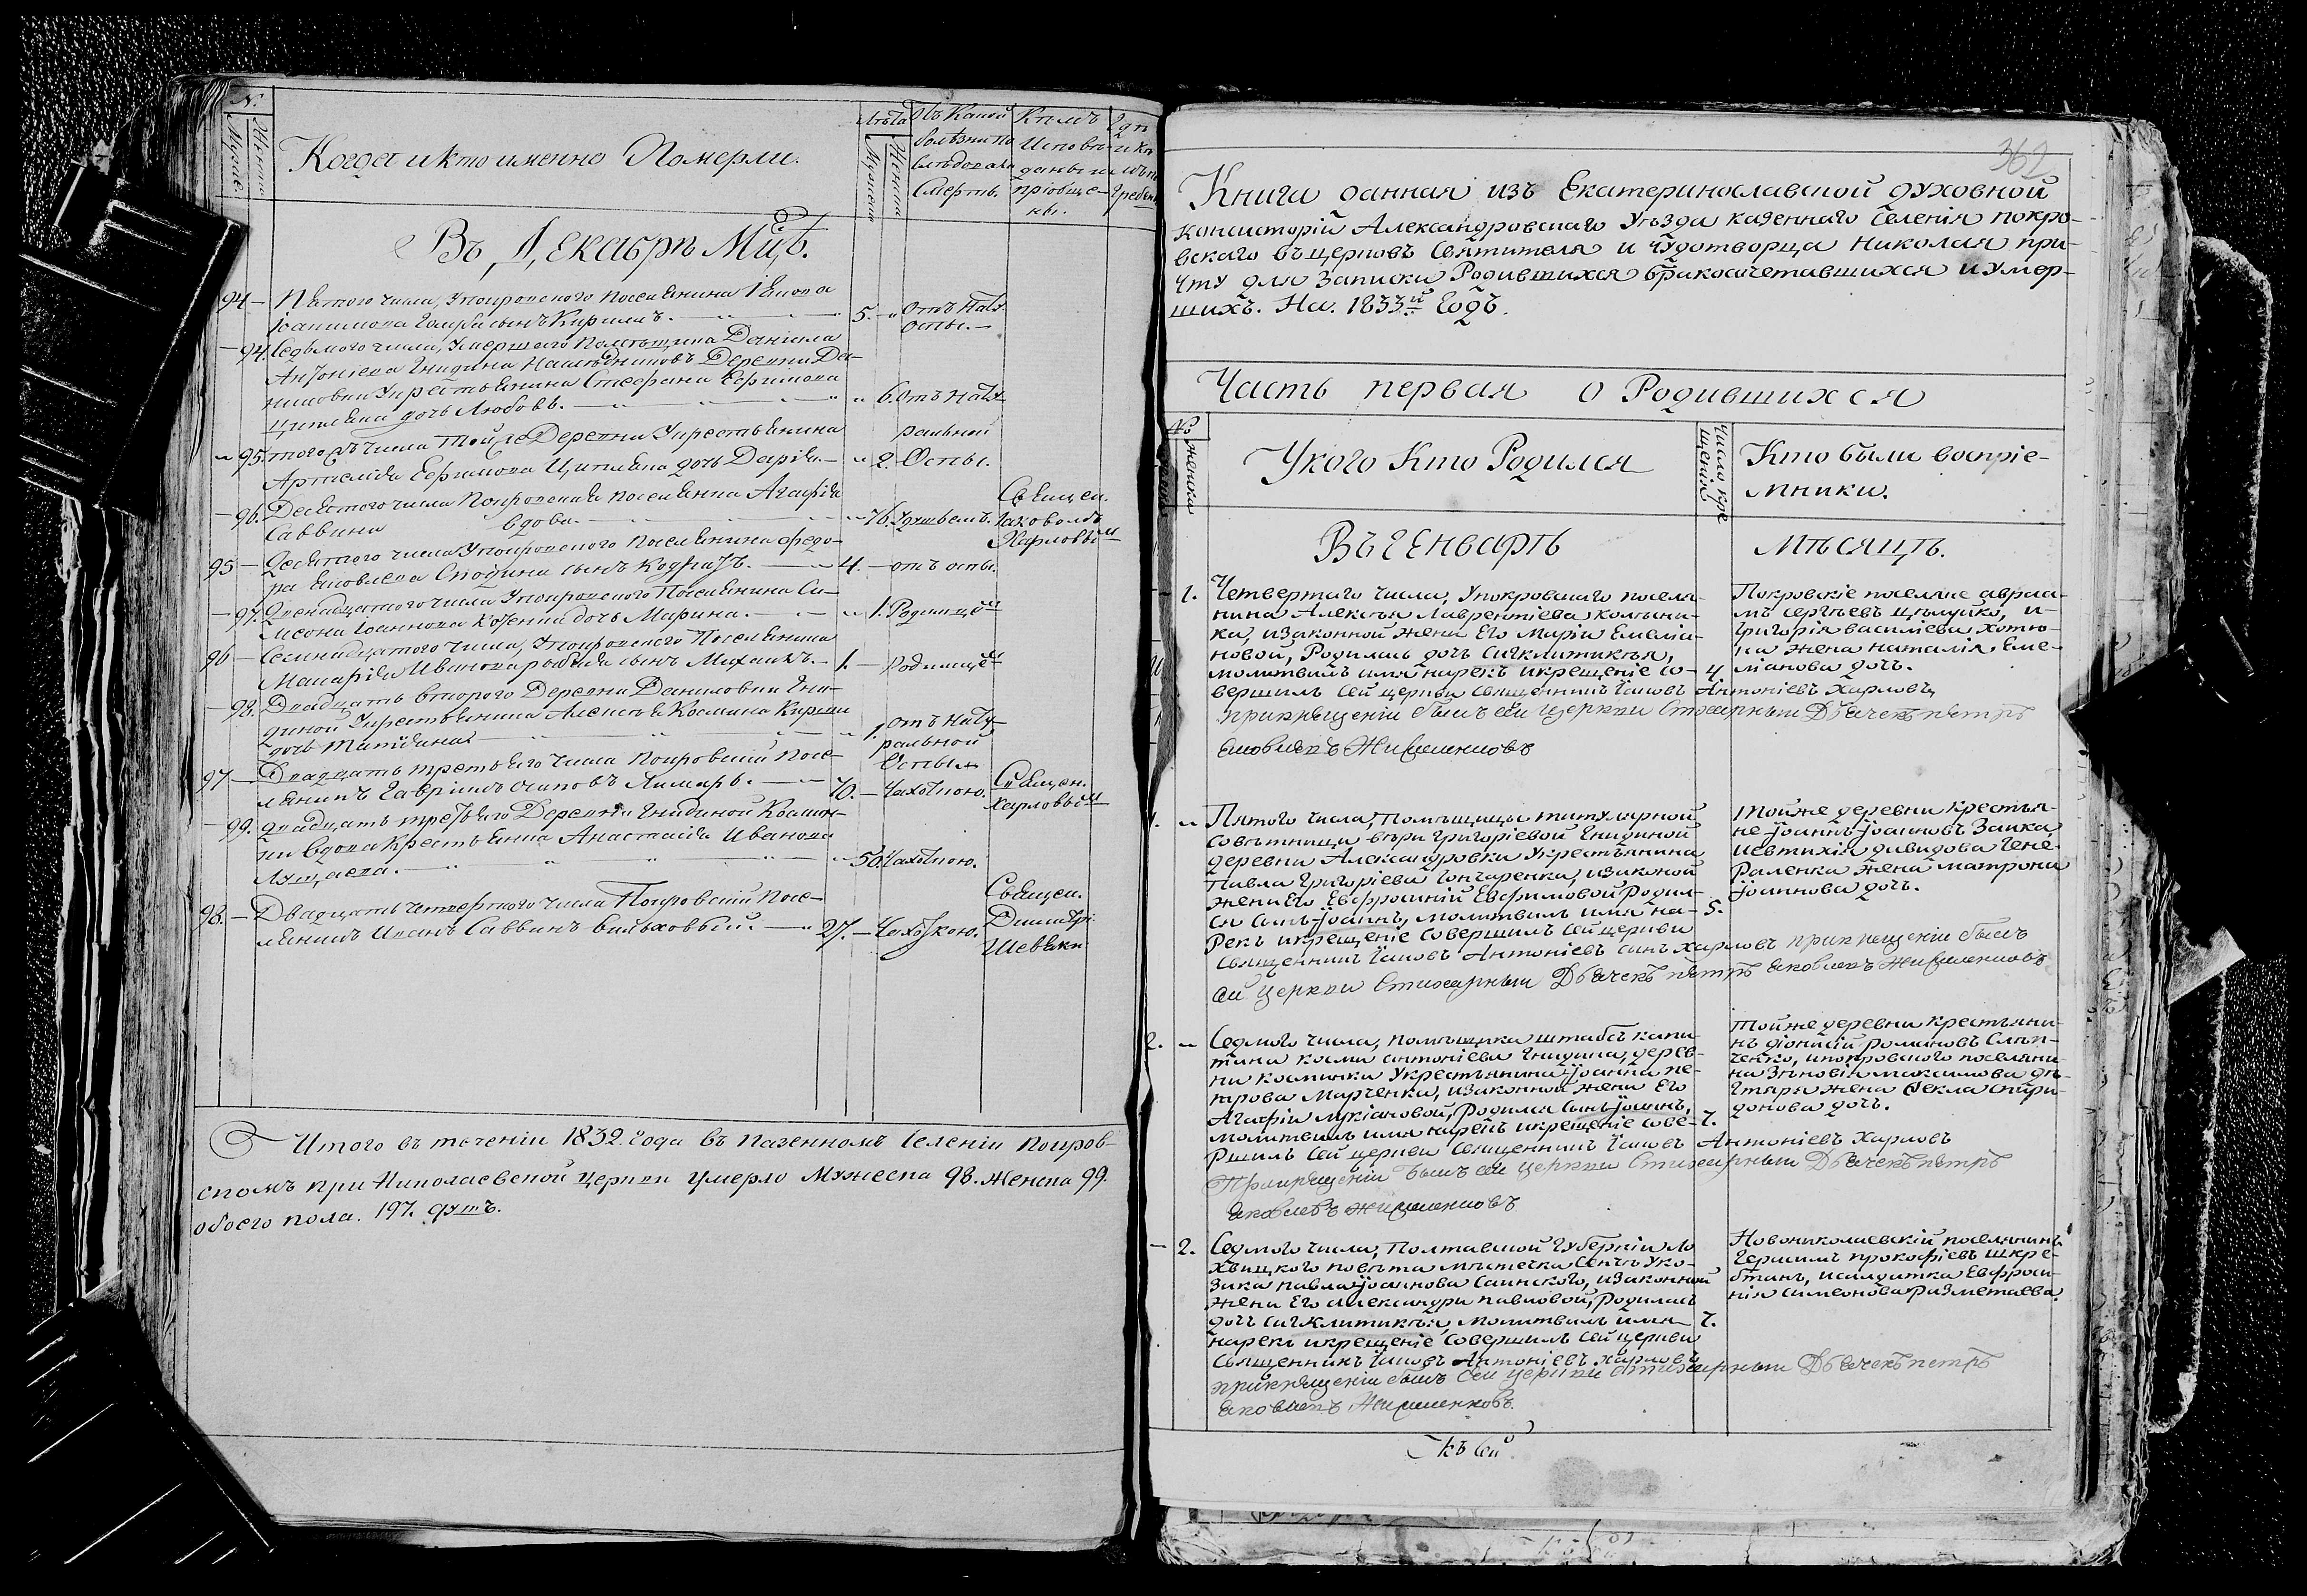 №
Мужие
Женина
Когда и кто именно Померли.
Лѣта
Мужение
Женина
Отъ Какой
болѣзни По
слѣдовала
Смерть.
Кѣмъ
Исповѣ-
даны и
пріобще-
ны.
Въ Декабрѣ Мцѣ.
94 — Пятого числа, Упокровского поселянина
сынъ Кирилъ. 5. — отъ Нату
оспы. —
— 94. Седьмого числа, Умершаго Помѣщика Даніила
Антоніева Гнидина Наслѣдниковъ Деревни Да-
ниловки Укрестьянина Стефана Ефимова
дочь Любовь. — „ 6. отъ Нату
ральной
„ 95. того жъ числа Той же Деревни Укрестьянина
Ефимова Ципляка дочь Дарія. — „ 2. Оспы.
— 96. Десятого числа Покровская поселянка Агафія
Саввина вдова. — „ 76. Удушьемъ.
Священ.
Іаковомъ
Харловымъ
95 — Десятого числа Упокровского поселянина Федо-
ра Яковлева сынъ Кодратъ. — 4. — отъ оспы.
— 97. Двенадцатого числа Упокровского Поселянина Си-
меона Іоаннова дочь Марина. — „ 1. Родимцемъ
96 — Семнадцатого числа, Упокровского Поселянина
Макарія Иванова сынъ Михаилъ. — 1. — родимцемъ
— 98. Двадцать второго Деревни Даниловки Гни-
диной Укрестьянина Алексѣя Космина
дочь Татіана „ 1. отъ нату
ральной
Оспы.
97 — Двадцать третьего числа Покровскій посе-
лянинъ Гавріилъ Осиповъ Лимарь. — 70. — Чахоткою.
Священ.
Харловымъ
— 99. двадцать третьего Деревни Гнидиной Космин-
ки вдова Крестьянка Анастасія Иванова
„ 50. Чахоткою.
98. — Двадцать четвертого числа Покровскій посе-
лянинъ Иванъ Саввинъ Вильховый. — 27. — Чахоткою.
Священ.
Димитрі
Шевяки
Итого въ теченіи 1832. Года въ казенномъ Селеніи покров-
скомъ при Николаевской Церкви умерло Мужеска 98. Женска 99.
обоего пола. 197. душъ.
362
Книга данная изъ Екатеринославской духовной
консисторій Александровскаго Уѣзда казеннаго Селенія покро-
вскаго въ церковь Святителя и чудотворца Николая при-
чту для Записки Родившихся бракосочетавшихся и умер-
шихъ. На. 1833й Годъ.
Часть первая о Родившихся
№
женики
Укого Кто Родился
Число кре
щенія
Кто были воспріе-
мники.
Въ Генварѣ Мѣсяцѣ.
— 1. Четвертаго числа, Упокровскаго поселя-
нина Алексѣя Лаврентіева Колѣсни-
ка, изаконной жены Его Маріи Емелія-
новой, Родилась дочь Сигклитикѣя,
молитвилъ имя нарекъ икрещеніе со- 4.
вершилъ сей церкви священникъ Іаковъ Антоніевъ Харловъ,
прикрещеніи былъ сей церкви Стихарный Дьячекъ петръ
Яковлевъ
Покровскіе поселяне авраа-
мъ сергѣевъ цѣлуйко, и
Григорія василіева хотю-
на жена наталія, Еме-
ліанова дочь.
1. „ Пятого числа, Помѣщицы титулярной
совѣтницы вѣры григоріевой Гнидиной
деревни Александровки Укрестьянина
Павла Григоріева Гончаренка, изаконной
жены Его Евфросиніи Евфимовой Родил-
ся сынъ Іоаннъ, молитвилъ имя на- 5.
Рекъ икрещеніе совершилъ сей церкви
священникъ Іаковъ Антоніевъ сынъ Харловъ прикрещеніи былъ
сей церкви Стихарный Дьячекъ петръ Яковлевъ
Тойже деревни крестья-
не Іоаннъ Іоанновъ Заика,
иевтихія давидова Гене-
Раленка жена матрона
Іоаннова дочь.
2. „ Седмого числа, помѣщика штабсъ капи-
тана косми антоніева Гнидина, дерев-
ни косминки Укрестьянина Іоанна пе-
трова Марченка, изаконной жены Его
Агафіи лукіановой, Родился сынъ Іоаннъ,
молитвилъ имя нарекъ икрещеніе сове- 7.
Ршилъ сей церкви священникъ Іаковъ Антоніевъ Харловъ
Прикрещеніи былъ сей церкви Стихарный Дьячекъ петръ
Яковлевъ
Тойже деревни крестьяни-
нъ діонисій романовъ Слѣп-
ченко, ипокровского поселяни-
на Зѣновія максимова дѣ-
гтяря жена Фекла спири-
донова дочь.
— 2. Седмого числа, Полтавской губерніи Ло
хвицкого повѣта мѣстечка Сенчъ Уко-
зака павла Іоаннова Саинского, изаконной
жены Его александры павловой, Родилась
дочь Сигклитикѣя, молитвилъ имя 7.
нарекъ икрещеніе совершилъ сей церкви
священникъ Іаковъ Антоніевъ Харловъ
прикрещеніи былъ сей церкви стихарный Дьячекъ петръ
Яковлевъ
Новониколаевскій поселянинъ
Герасимъ прокофіевъ шкре-
бтанъ, исалдатка Евфроси-
нія симеонова разметаева.
Къ сей